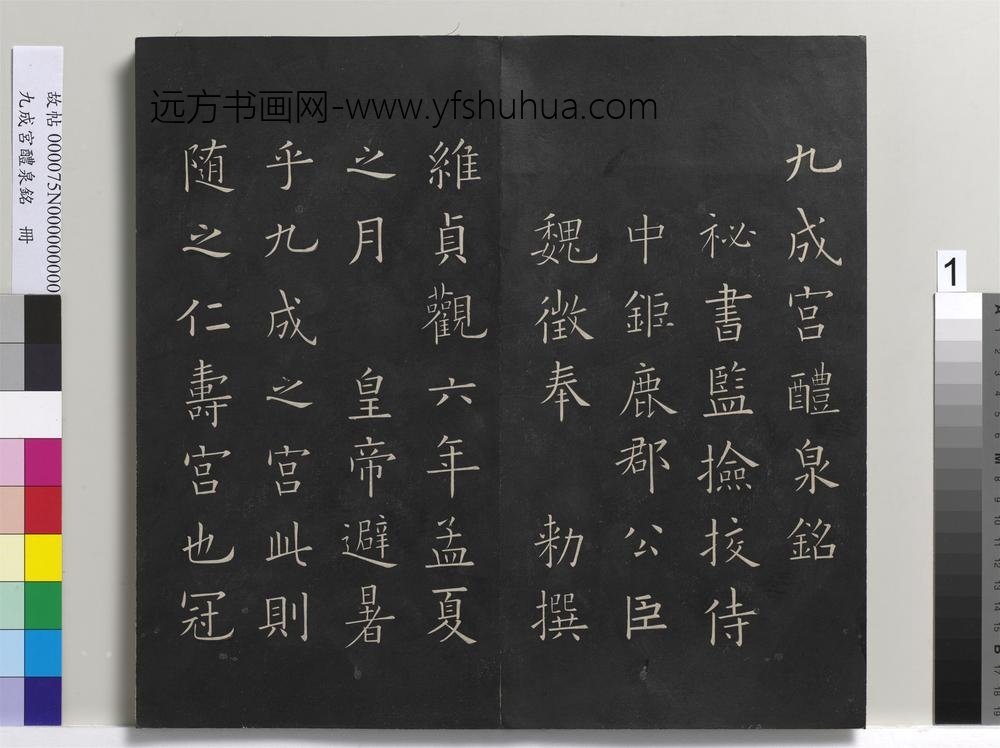 九成宮醴泉銘
祕書監撿挍侍
中鉅鹿郡公臣
魏徵奉 勑撰
維貞觀六年孟夏
之月 皇帝避暑
乎九成之宮此則
随之仁壽宮也冠
远方书画网-www.yfshuhua.com
故帖 000075N000000000
九成宮醴泉銘 冊
1